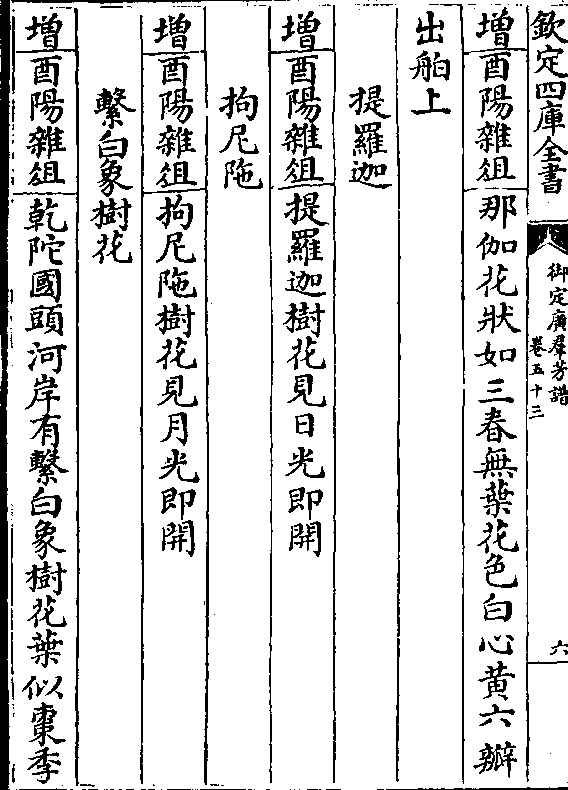 欽定四庫全書
御定廣羣芳譜
卷五十三
六
增酉陽雜俎那伽花狀如三春無葉花色白心黄六瓣
出舶上
提羅迦
增酉陽雜俎提羅迦樹花見日光即開
拘尼陁
增酉陽雜俎拘尼陁樹花見月光即開
繫白象樹花
增酉陽雜俎乾陀國頭河岸有繫白象樹花葉似棗季